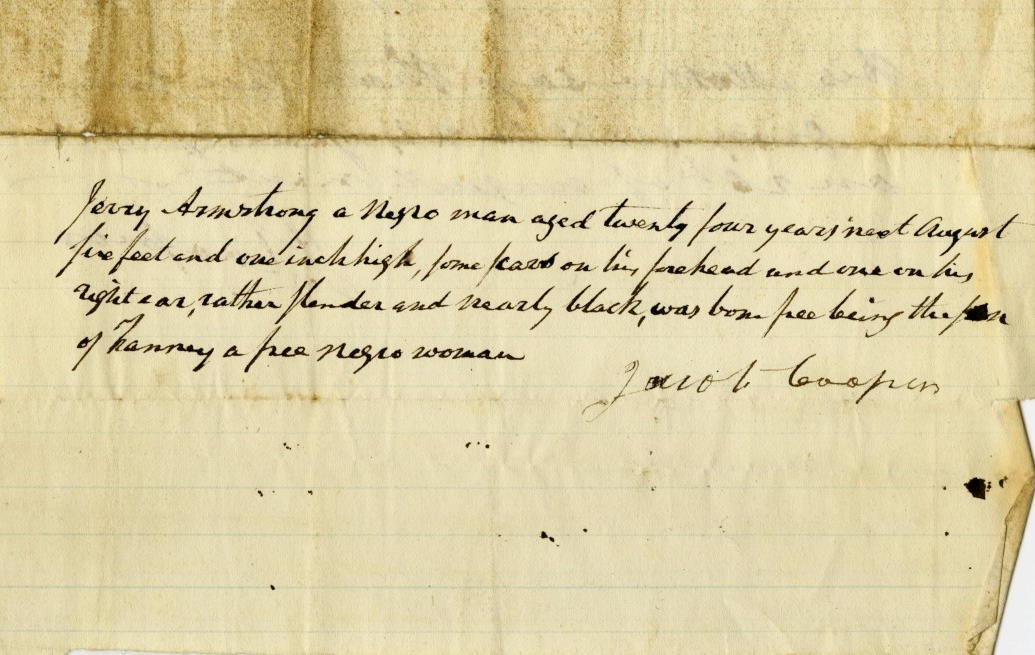 Jerry Armstrong a Negro man aged twenty four years next August
five feet and one inch high, some scars on his forehead and one on his
right ear, rather slender and nearly black, was born free being the son
of Fanney a free negro woman
Jacob Cooper